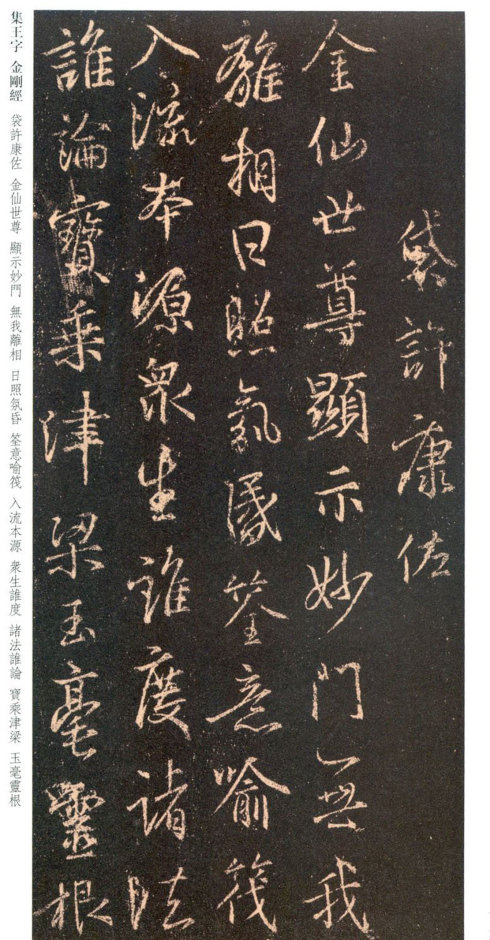 袋許康佐
金仙世尊顯示妙門無我
離相日照氛昏筌意喻筏
入流本源衆生誰度諸法
誰論寶乘津梁玉毫靈根
集王字 金剛經 袋許康佐 金仙世尊 顯示妙門 無我離相 日照氛昏 筌意喻筏 入流本源 衆生誰度 諸法誰論 寶乘津梁 玉毫靈根